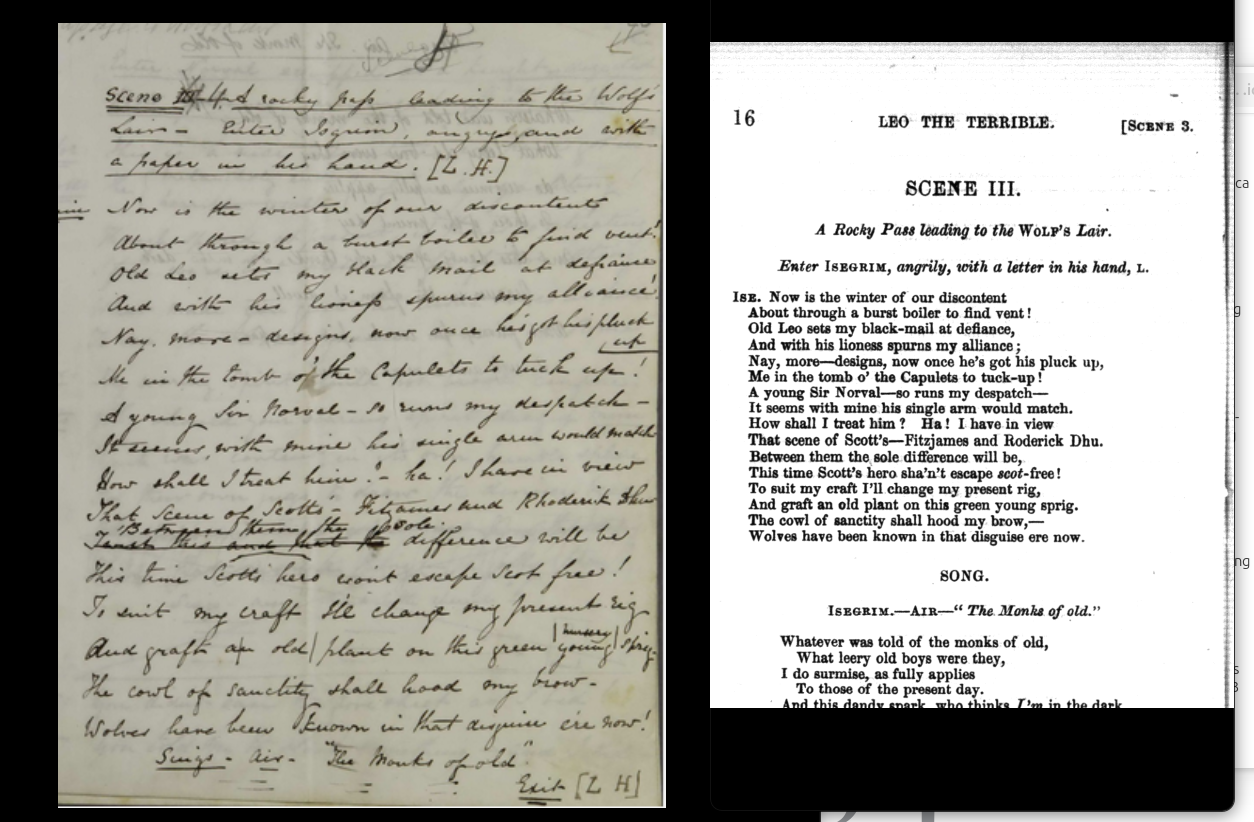 Scene 4 A rocky pass leading to the Wolf's
Lair - Enter Isegrim, angry, and with
a paper in his hand. [L.H.]
Now is the winter of our discontent
About through a burst boiler to find vent!
Old Leo sets my black mail at defiance
And with his lioness spurns my alliance!
Nay, more - designs, now once he's got his pluck
up
Me in the tomb o' the Capulets to tuck up!
A young Sir Norval - so runs my despatch -
It seems, with mine his single arm would match
How shall I treat him? - ha! I have in view
That scene of Scott's - Fitzjames and Rhoderick Dhu
Between them, the sole
this and that the difference will be
This time Scott's hero won't escape Scot free!
To suit my craft I'll change my present rig
nursery
And graft an old plant on this green young sprig
The cowl of sanctity shall hood my brow -
Wolves have been known in that disguise ere now!
Sings - Air - "The Monks of old"
Exit [L H]
16
LEO THE TERRIBLE.
[SCENE 3.
SCENE III.
A Rocky Pass leading to the WOLF'S Lair.
Enter ISEGRIM, angrily, with a letter in his hand, L.
ISE. Now is the winter of our discontent
About through a burst boiler to find vent!
Old Leo sets my black-mail at defiance,
And with his lioness spurns my alliance;
Nay, more—designs, now once he's got his pluck up,
Me in the tomb o' the Capulets to tuck-up!
A young Sir Norval—so runs my despatch—
It seems with mine his single arm would match.
How shall I treat him? Ha! I have in view
That scene of Scott's—Fitzjames and Roderick Dhu.
Between them the sole difference will be,
This time Scott's hero sha'n't escape scot-free!
To suit my craft I'll change my present rig,
And graft an old plant on this green young sprig.
The cowl of sanctity shall hood my brow,—
Wolves have been known in that disguise ere now.
SONG.
ISEGRIM.—AIR—"The Monks of old."
Whatever was told of the monks of old,
What leery old boys were they,
I do surmise, as fully applies
To those of the present day.
And this dandy spark, who thinks I'm in the dark